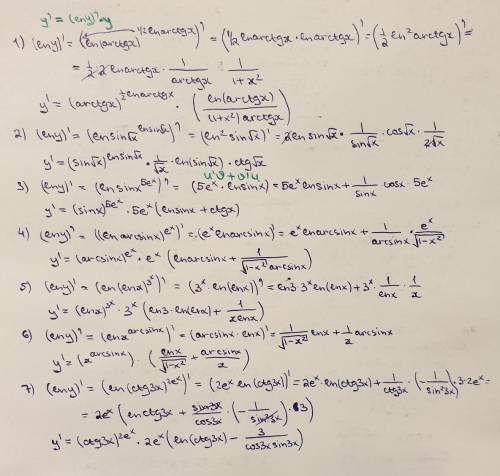 y' = (lny)'·y
1) (lny)' = (ln(arctgx)^{1/2 lnarctgx})' = (1/2 lnarctgx · lnarctgx)' = (1/2 ln²arctgx)' =
= 1/2 · 2 lnarctgx · 1/arctgx · 1/(1+x²)
y' = (arctgx)^{1/2 lnarctgx} · (ln(arctgx)/((1+x²)arctgx))
2) (lny)' = (lnsin√x^{lnsin√x})' = (ln²sin√x)' = 2lnsin√x · 1/sin√x · cos√x · 1/(2√x)
y' = (sin√x)^{lnsin√x} · 1/√x · ln(sin√x) · ctg√x
u'v + v'u
3) (lny)' = (lnsinx^{5e^x})' = (5e^x · lnsinx)' = 5e^x lnsinx + 1/sinx cosx · 5e^x
y' = (sinx)^{5e^x} · 5e^x (lnsinx + ctgx)
4) (lny)' = ((lnarcsinx)^{e^x})' = (e^x lnarcsinx)' = e^x lnarcsinx + 1/arcsinx · e^x/√(1-x²)
y' = (arcsinx)^{e^x} · e^x (lnarcsinx + 1/(√(1-x²) arcsinx))
5) (lny)' = (ln(lnx)^{3^x})' = (3^x · ln(lnx))' = ln3 · 3^x ln(lnx) + 3^x · 1/lnx · 1/x
y' = (lnx)^{3^x} · 3^x (ln3 · ln(lnx) + 1/(xlnx))
6) (lny)' = (lnx^{arcsinx})' = (arcsinx · lnx)' = 1/√(1-x²) lnx + 1/x arcsinx
y' = (x^{arcsinx}) · (lnx/√(1-x²) + arcsinx/x)
7) (lny)' = (ln(ctg3x)^{2e^x})' = (2e^x ln(ctg3x))' = 2e^x · ln(ctg3x) + 1/ctg3x · (-1/sin²3x) · 3 · 2e^x =
= 2e^x (lnctg3x + sin3x/cos3x · (-1/sin²3x) · 3)
y' = (ctg3x)^{2e^x} · 2e^x (ln(ctg3x) - 3/(cos3x sin3x))